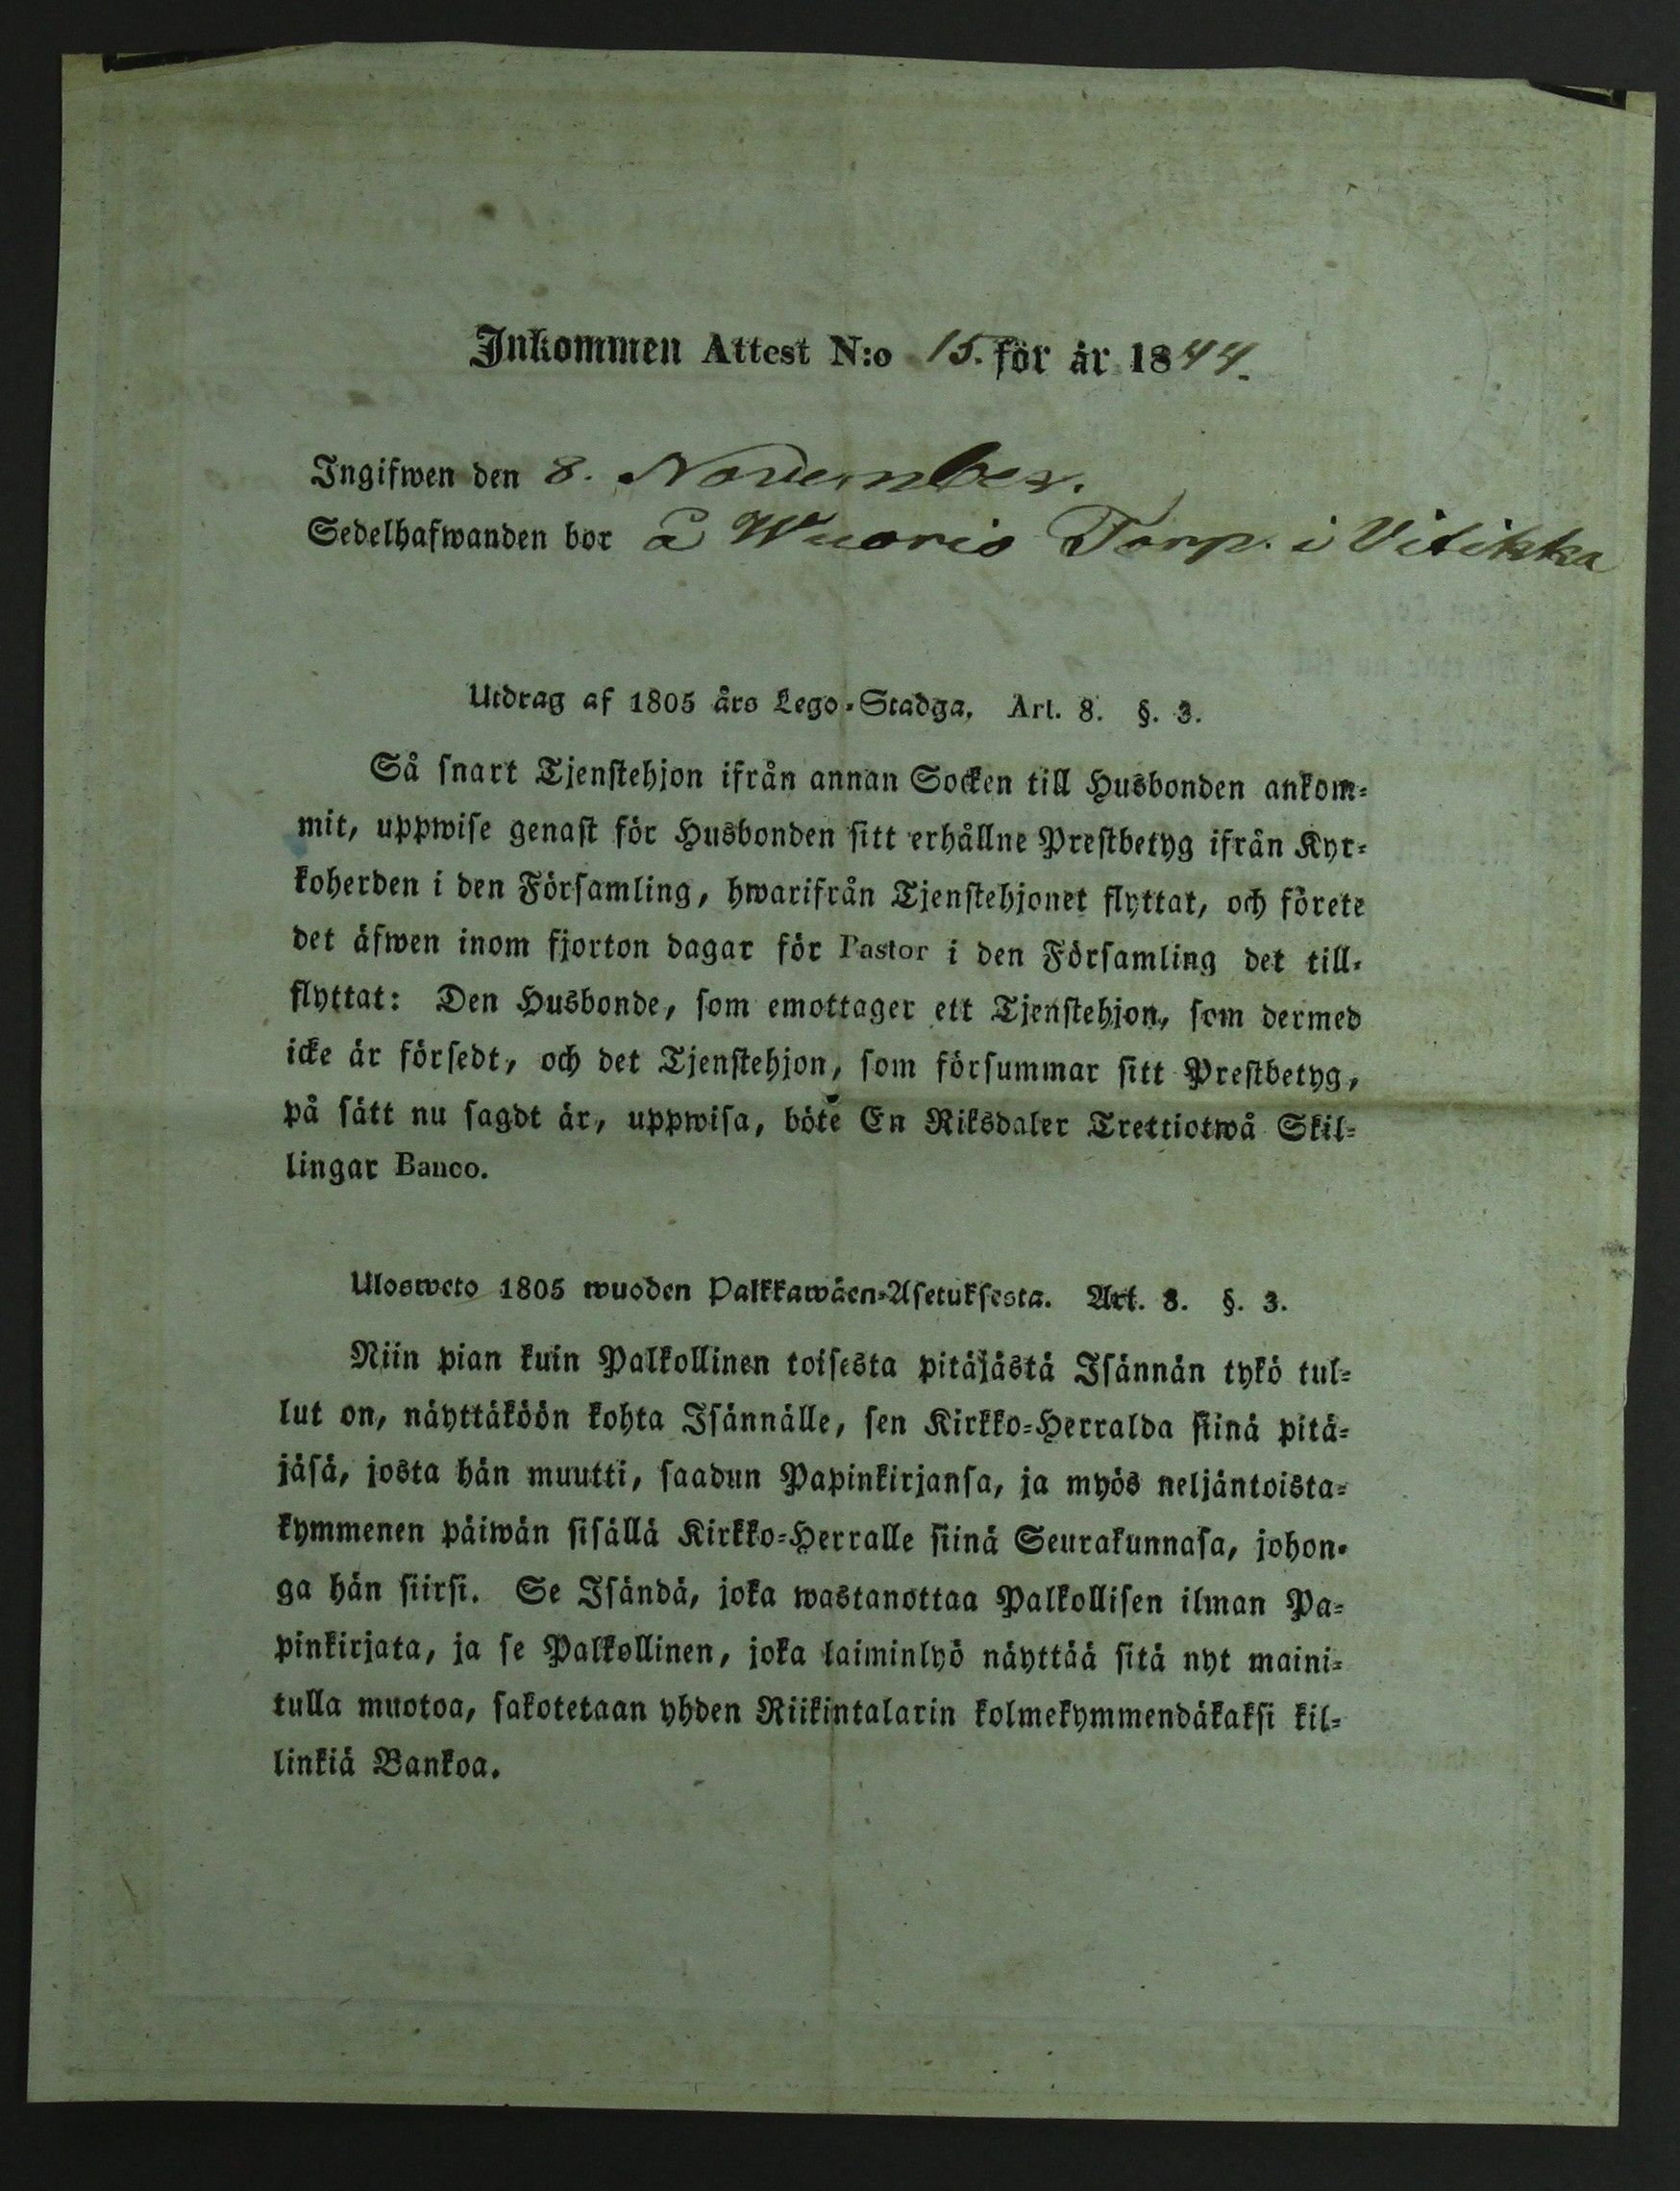 Inkommen Attest N:o 15. för år 1844.
Ingifwen den 8. November.
Sedelhafwanden bor å Wuorio Torp. i Vitikka
Utdrag af 1805 års Lego-Stadga, Art. 8. §. 3.
Så snart Tjenstehjon ifrån annan Socken till Husbonden ankom-
mit, uppwise genast för Husbonden sitt erhållne Prestbetyg ifrån Kyr-
koherden i den Församling, hwarifrån Tjenstehjonet flyttat, och förete
det äfwen inom fjorton dagar för Pastor i den Församling det till-
flyttat: Den Husbonde, som emottager ett Tjenstehjon, som dermed
icke är försedt, och det Tjenstehjon, som försummar sitt Prestbetyg,
på sätt nu sagdt är, uppwisa, böte En Riksdaler Trettiotwå Skil-
lingar Banco.
Ulosweto 1805 wuoden Palkkawäen-Asetuksesta. Art. 8. §. 3.
Niin pian kuin Palkollinen toisesta pitäjästä Isännän tykö tul-
lut on, näyttäköön kohta Isännälle, sen Kirkko-Herralda siinä pitä-
jäsä, josta hän muutti, saadun Papinkirjansa, ja myös neljäntoista-
kymmenen päiwän sisällä Kirkko-Herralle siinä Seurakunnasa, johon-
ga hän siirsi. Se Isändä, joka wastanottaa Palkollisen ilman Pa-
pinkirjata, ja se Palkollinen, joka laiminlyö näyttää sitä nyt maini-
tulla muotoa, sakotetaan yhden Riikintalarin kolmekymmendäkaksi kil-
linkiä Bankoa.